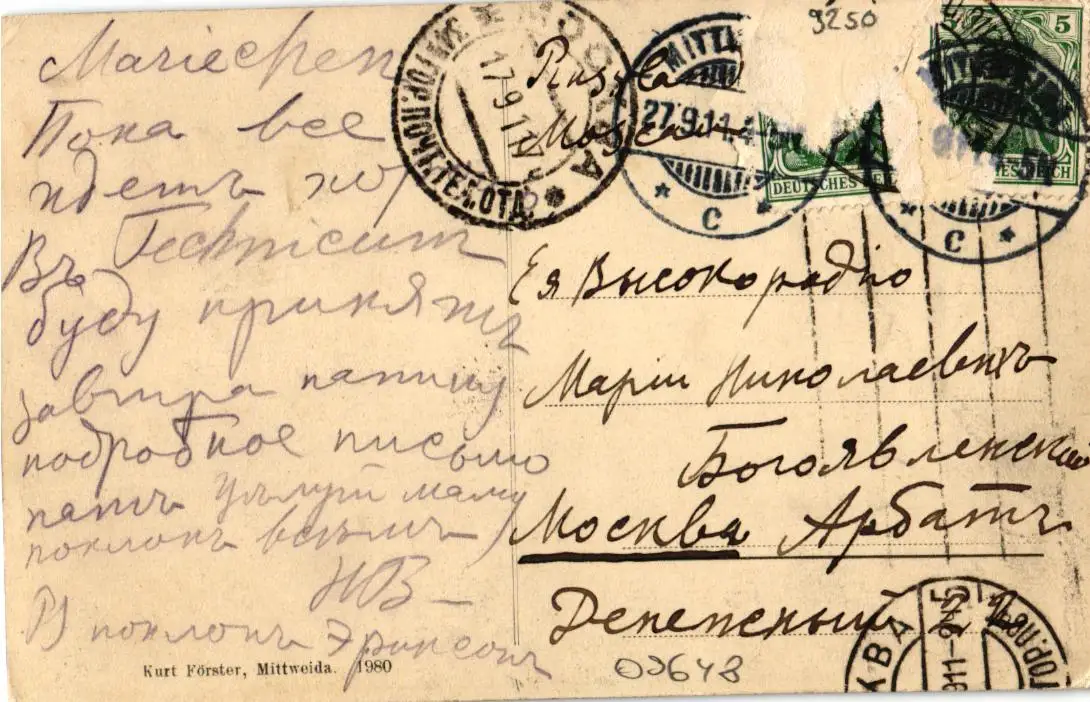 Mariechen
Пока все
идетъ хор
Въ Technicum
буду принятъ
завтра напишу
подробное письмо
папѣ Цѣлуй маму
поклонъ всѣмъ
НВ
PS поклонъ Эриксонъ
Kurt Förster, Mittweida. 1980
МОСКВА
17.9.11
27.9.11
C
9250
DEUTSCHES
5
C
Russland
Moskau
Ея Высокородію
Маріи Николаевнѣ
Богоявленской
Москва Арбатъ
Денежный
03648